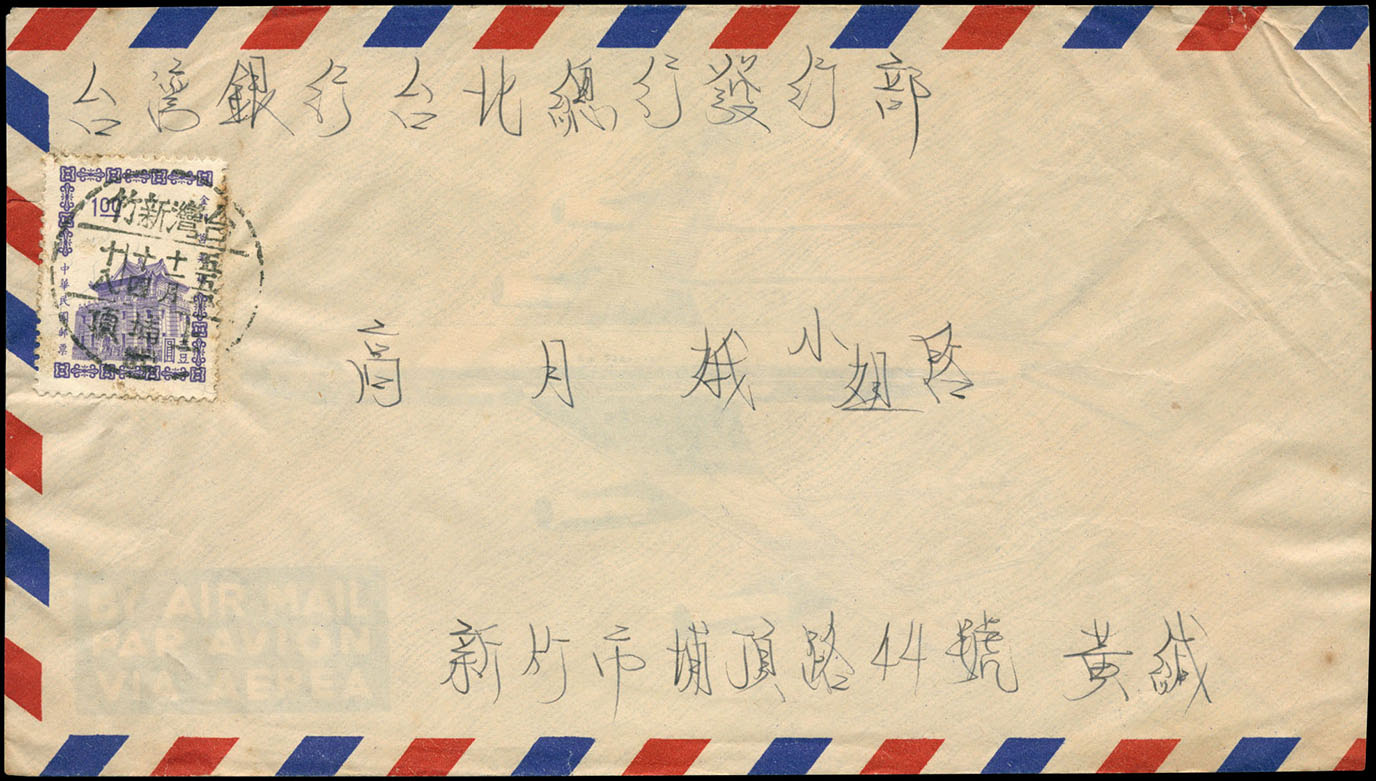 台灣銀行台北總行發行部
1.00
台灣新竹
五五
十一月
十四
十八
埔頂
中華民國郵票
壹圓
高月娥小姐啓
新竹市埔頂路44號 黃緘
BY AIR MAIL
PAR AVION
VIA AEREA